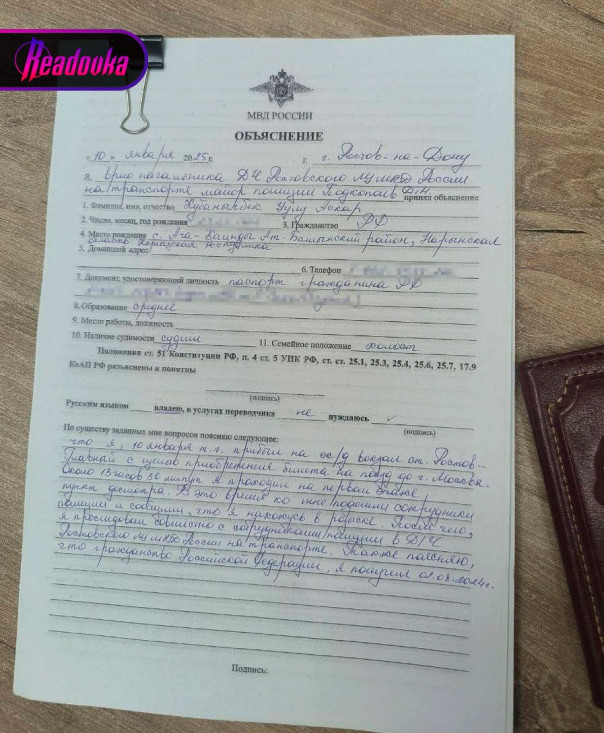 Readovka
МВД РОССИИ
ОБЪЯСНЕНИЕ
«10» января 2025 г. г. г. Ростов-на-Дону
Я, врио начальника ДЧ Ростовского ЛУ МВД России
на транспорте майор полиции Подкопаев Д.Н. принял объяснение
1. Фамилия, имя, отчество Кубанычбек Уулу Аскар
2. Число, месяц, год рождения 3. Гражданство РФ
4. Место рождения с. Ача-Каинды Ат-Башынский район, Нарынская
область Киргизская Республика
5. Домашний адрес
6. Телефон
7. Документ, удостоверяющий личность паспорт гражданина РФ
8. Образование среднее
9. Место работы, должность
10. Наличие судимости судим 11. Семейное положение холост
Положения ст. 51 Конституции РФ, п. 4 ст. 5 УПК РФ, ст. ст. 25.1, 25.3, 25.4, 25.6, 25.7, 17.9
КоАП РФ разъяснены и понятны
(подпись)
Русским языком владею, в услугах переводчика не нуждаюсь
(подпись)
По существу заданных мне вопросов поясняю следующее:
что я, 10 января т.г. прибыл на ж/д вокзал ст. Ростов-
Главный с целью приобретения билета на поезд до г. Москва.
Около 13 часов 50 минут я проходил на первом этаже
пункт досмотра. В это время ко мне подошли сотрудники
полиции и сообщили, что я нахожусь в розыске. После чего,
я проследовал совместно с сотрудниками полиции в ДЧ
Ростовского ЛУ МВД России на транспорте. Также поясняю,
что гражданство Российской Федерации, я получил 02.08.2024г.
Подпись: